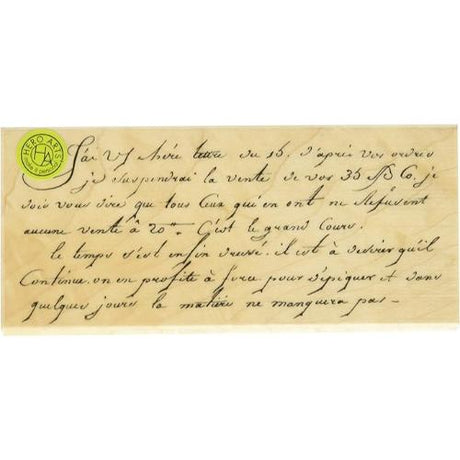 HERO ARTS
HA
J'ai Vs chère lettre du 15. d'après vos ordres
je suspendrai la vente de vos 35 Co, je
dois vous dire que tous ceux qui en ont ne Refusent
aucune vente à 20 . C'est le grand Cours.
le temps s'est enfin il est à desirer qu'il
Continue. on en profite à force pour dépiquer et dans
quelques jours la matière ne manquera pas –